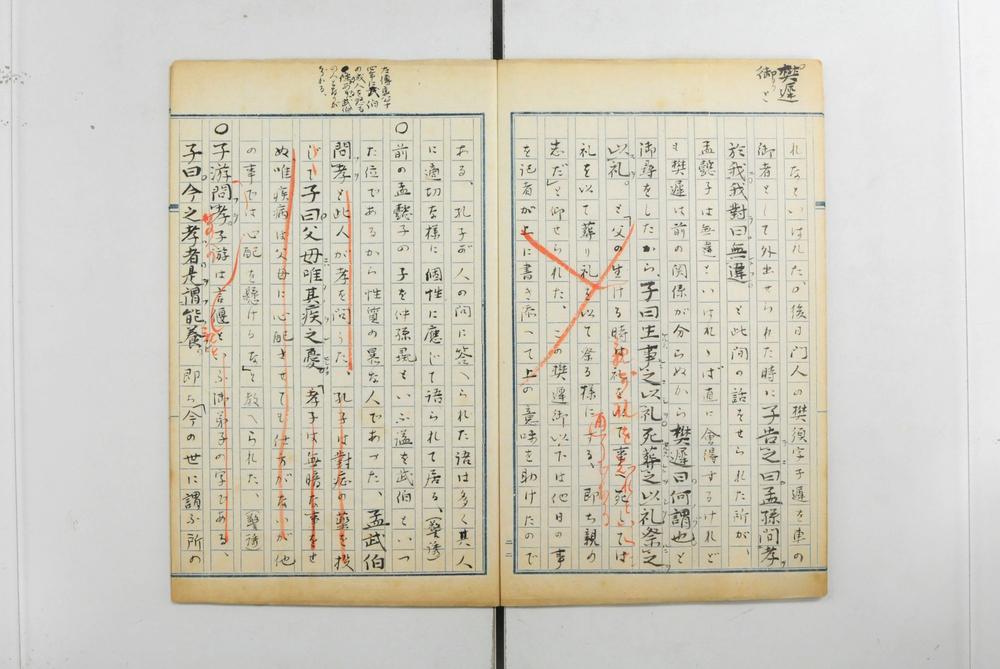 樊遲
御 と
れなといはれたが後日門人の樊須字子遲を車の
御者として外出せられた時に子告之曰孟孫問孝
於我我對曰無違 と此間の話をせられた所が、
孟懿子は無違といはれゝば直に會得するけれど
も樊遲は前の関係が分らぬから樊遲曰何謂也と
御尋をしたから、子曰生事之以礼死葬之以礼祭之
以礼。と「父の生ける時
礼を以て葬り礼を以て祭る様にする、即ち親の
志だ」と仰せられた、この樊遲御以下は他日の事
を記者が上に書き添へて上の意味を助けたので
ある、孔子が人の問に答へられた語は多く其人
に適切な様に個性に應じて語られて居る、
〇前の孟懿子の子を仲孫彘といふ謚を武伯といつ
た位であるから性質の暴な人であつた、孟武伯
問孝と此人が孝を問うた、孔子は對症の薬を投
じて子曰父母唯其疾之憂「孝子は無暗な事をせ
ぬ唯疾病は父母に心配させても仕方がないが他
の事では心配を懸けらるな」と教へられた、
〇子游問孝子游は言偃といふ御弟子の字である、
子曰今之孝者是謂能養 即ち「今の世に謂ふ所の